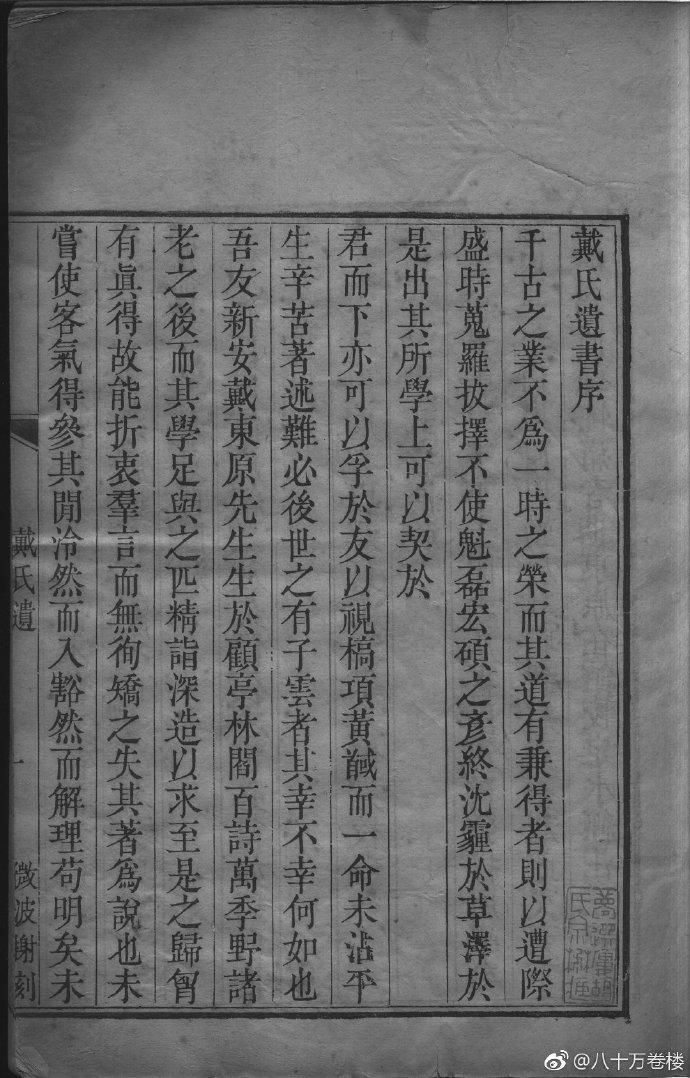 戴氏遺書序
千古之業不爲一時之榮而其道有兼得者則以遭際
盛時蒐羅拔擇不使魁磊宏碩之彥終沈霾於草澤於
是出其所學上可以契於
君而下亦可以孚於友以視槁項黃馘而一命未沾平
生辛苦著述難必後世之有子雲者其幸不幸何如也
吾友新安戴東原先生生於顧亭林閻百詩萬季野諸
老之後而其學足與之匹精詣深造以求至是之歸胷
有眞得故能折衷羣言而無徇矯之失其著爲說也未
嘗使客氣得參其閒泠然而入豁然而解理苟明矣未
戴氏遺
一
微波榭刻
@八十万卷楼